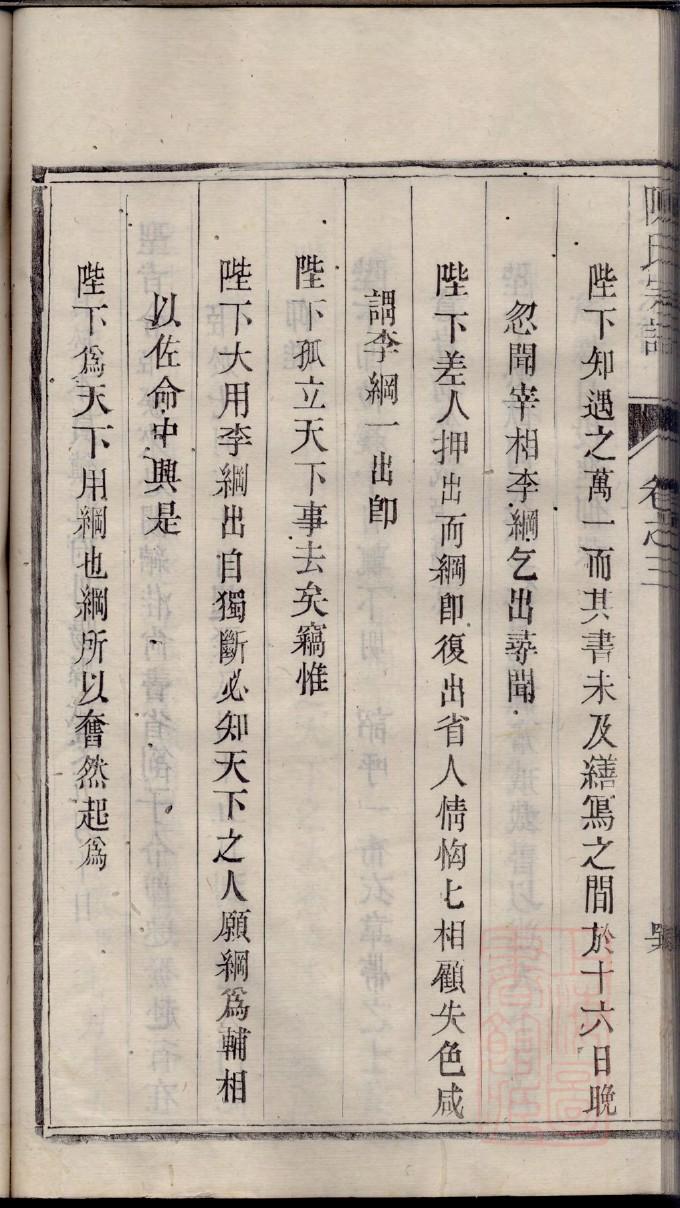 陳氏宗譜 卷之三
陛下知遇之萬一而其書未及繕寫之間於十六日晚
忽聞宰相李綱乞出尋聞
陛下差人押出而綱即復出省人情恟匕相顧失色咸
謂李綱一出即
陛下孤立天下事去矣竊惟
陛下大用李綱出自獨斷必知天下之人願綱爲輔相
以佐命中興是
陛下爲天下用綱也綱所以奮然起爲